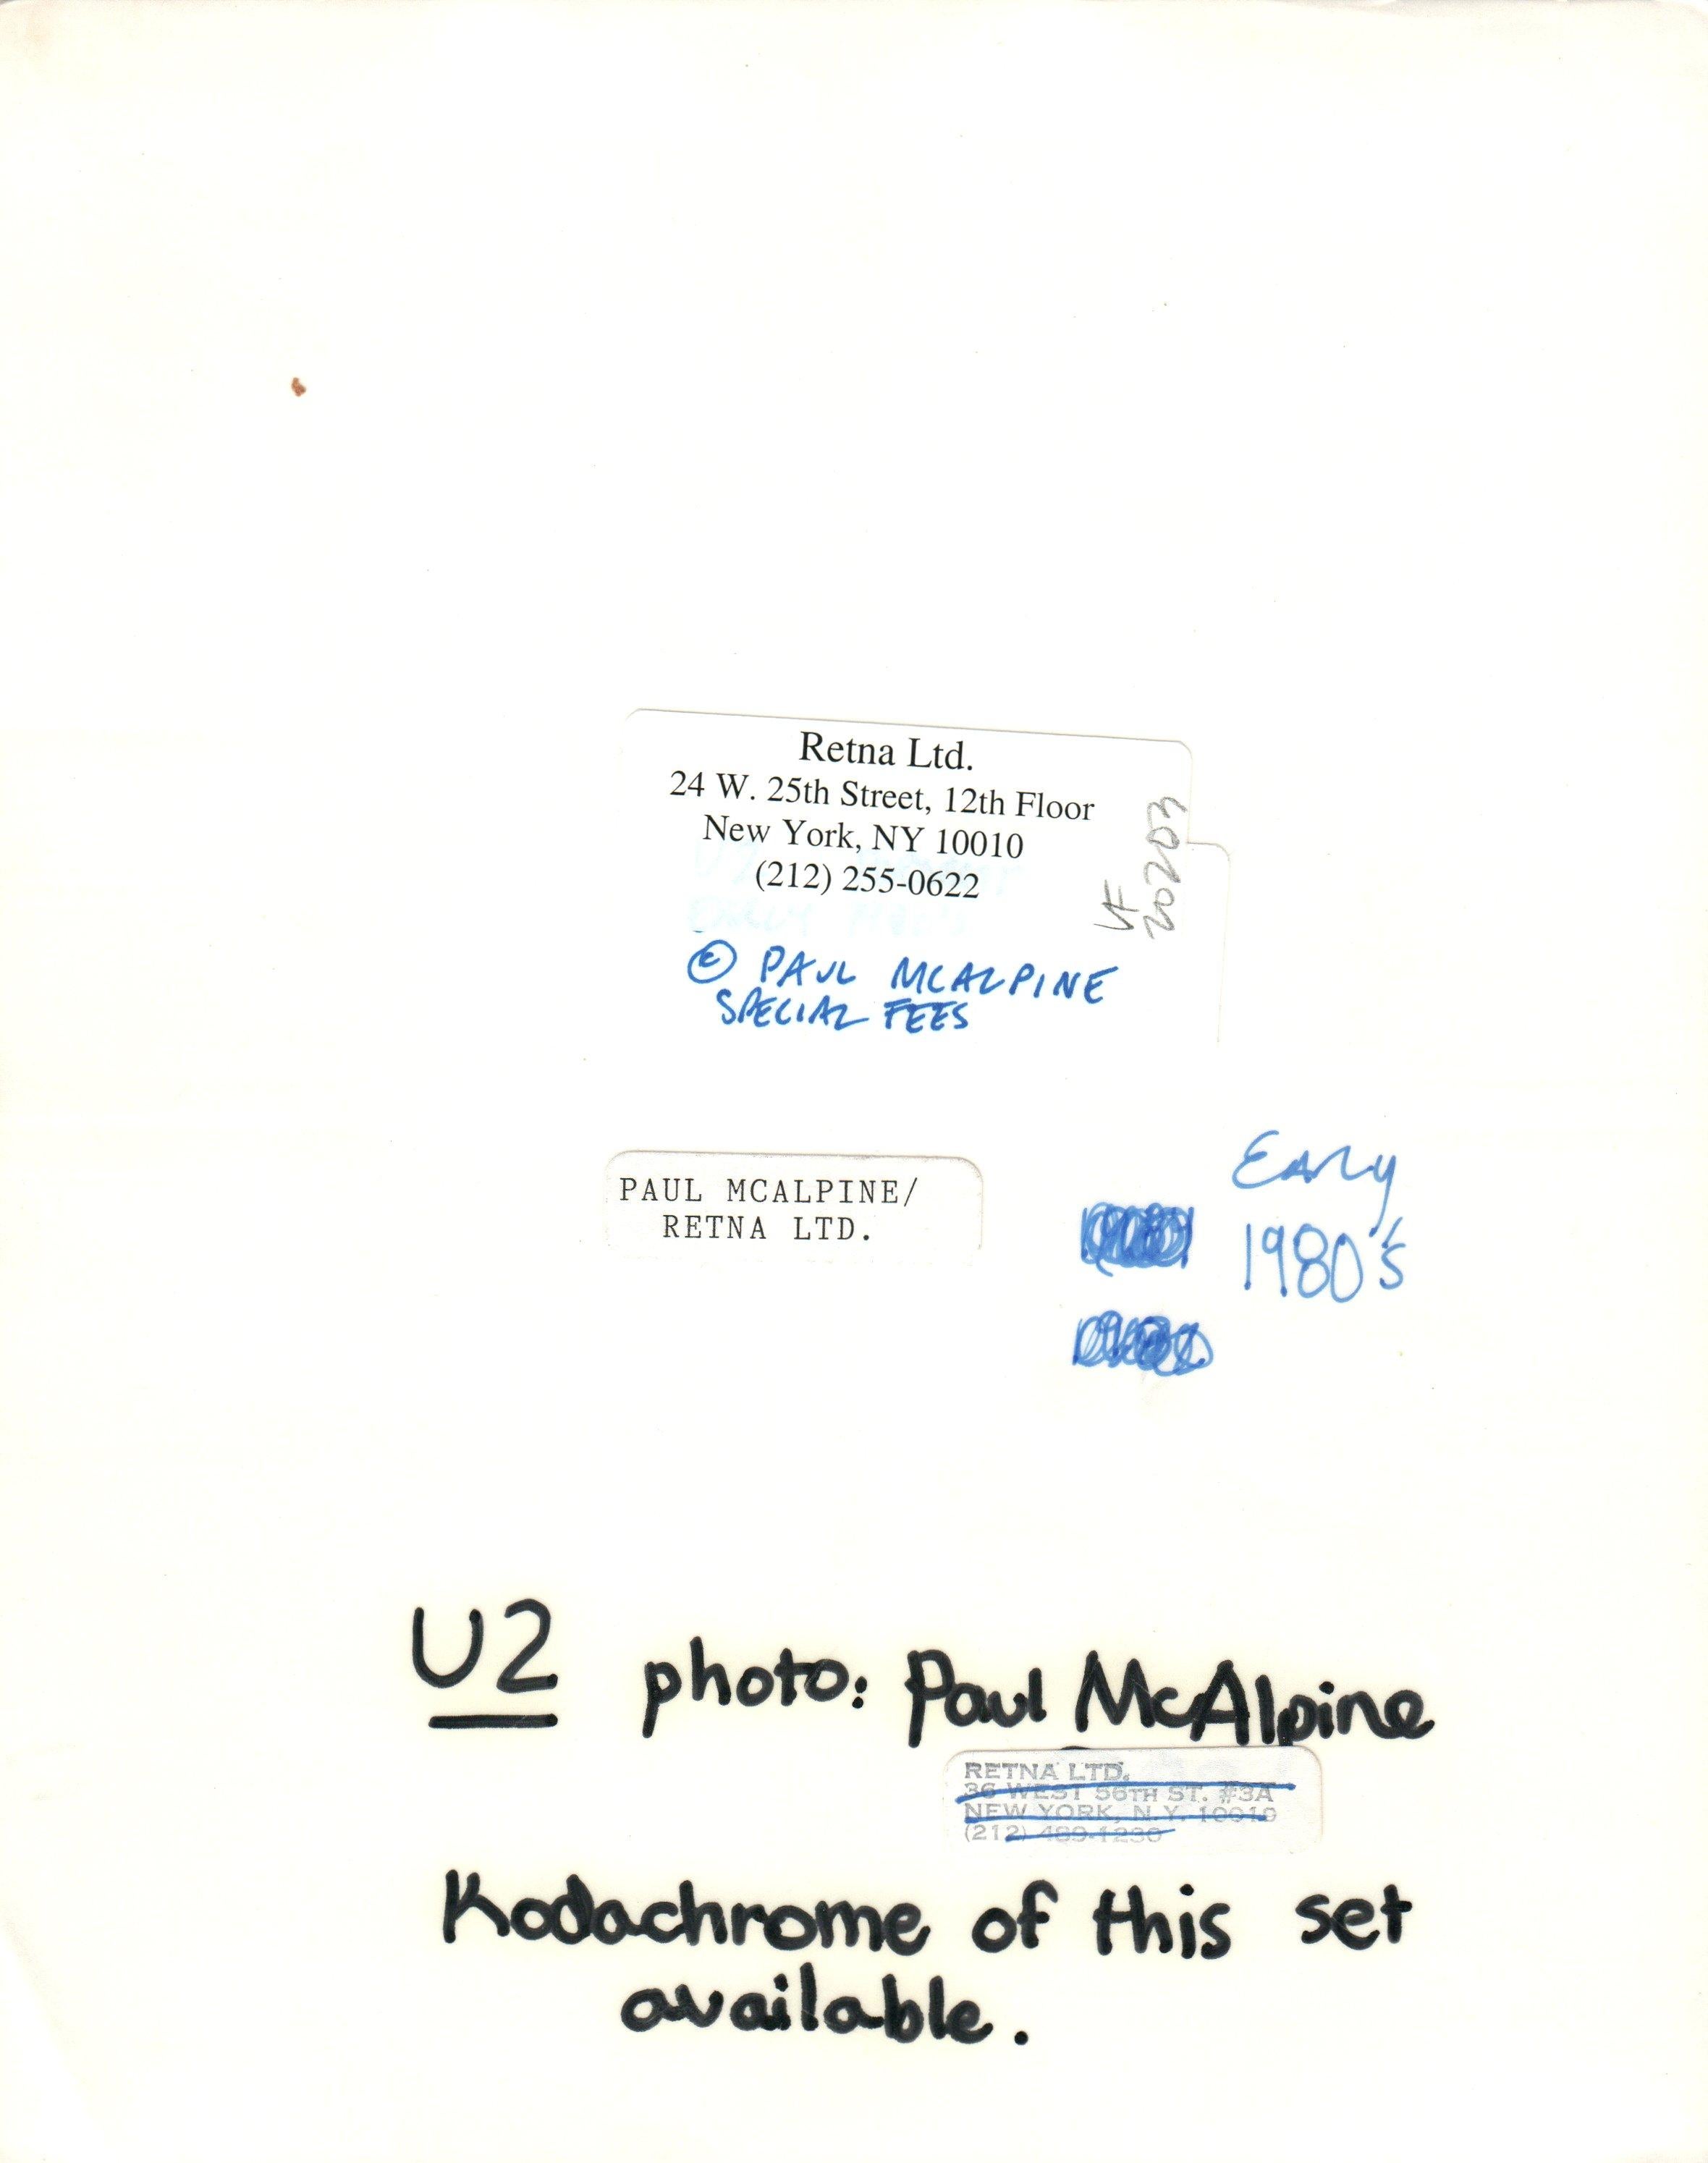 Retna Ltd.
24 W. 25th Street, 12th Floor
New York, NY 10010
(212) 255-0622
VF
20203
© PAUL MCALPINE
SPECIAL FEES
PAUL MCALPINE/
RETNA LTD.
EARLY
1980's
U2 photo: Paul McAlpine
RETNA LTD.
36 WEST 56TH ST. #3A
NEW YORK, N.Y. 10019
(212) 489-1230
Kodachrome of this set
available.